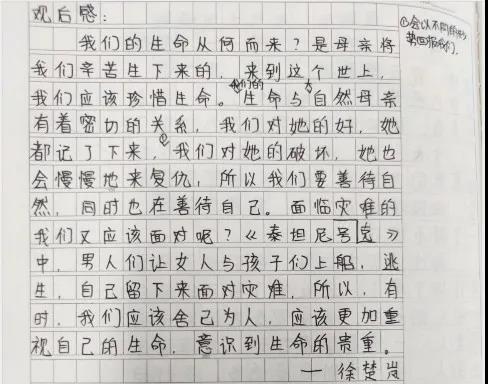 观后感:
我们的生命从何而来?是母亲将
我们辛苦生下来的,来到这个世上,
我们应该珍惜生命。我们的生命与自然母亲
有着密切的关系,我们对她的好,她
都记了下来,①我们对她的破坏,她也
会慢慢地来复仇,所以我们要善待自
然,同时也在善待自己。面临灾难的
我们又应该面对呢?《泰坦尼号克》
中,男人们让女人与孩子们上船,逃
生,自己留下来面对灾难,所以,有
时,我们应该舍己为人,应该更加重
视自己的生命,意识到生命的贵重。
— 徐楚岚
①会以不同的形
势回报我们.